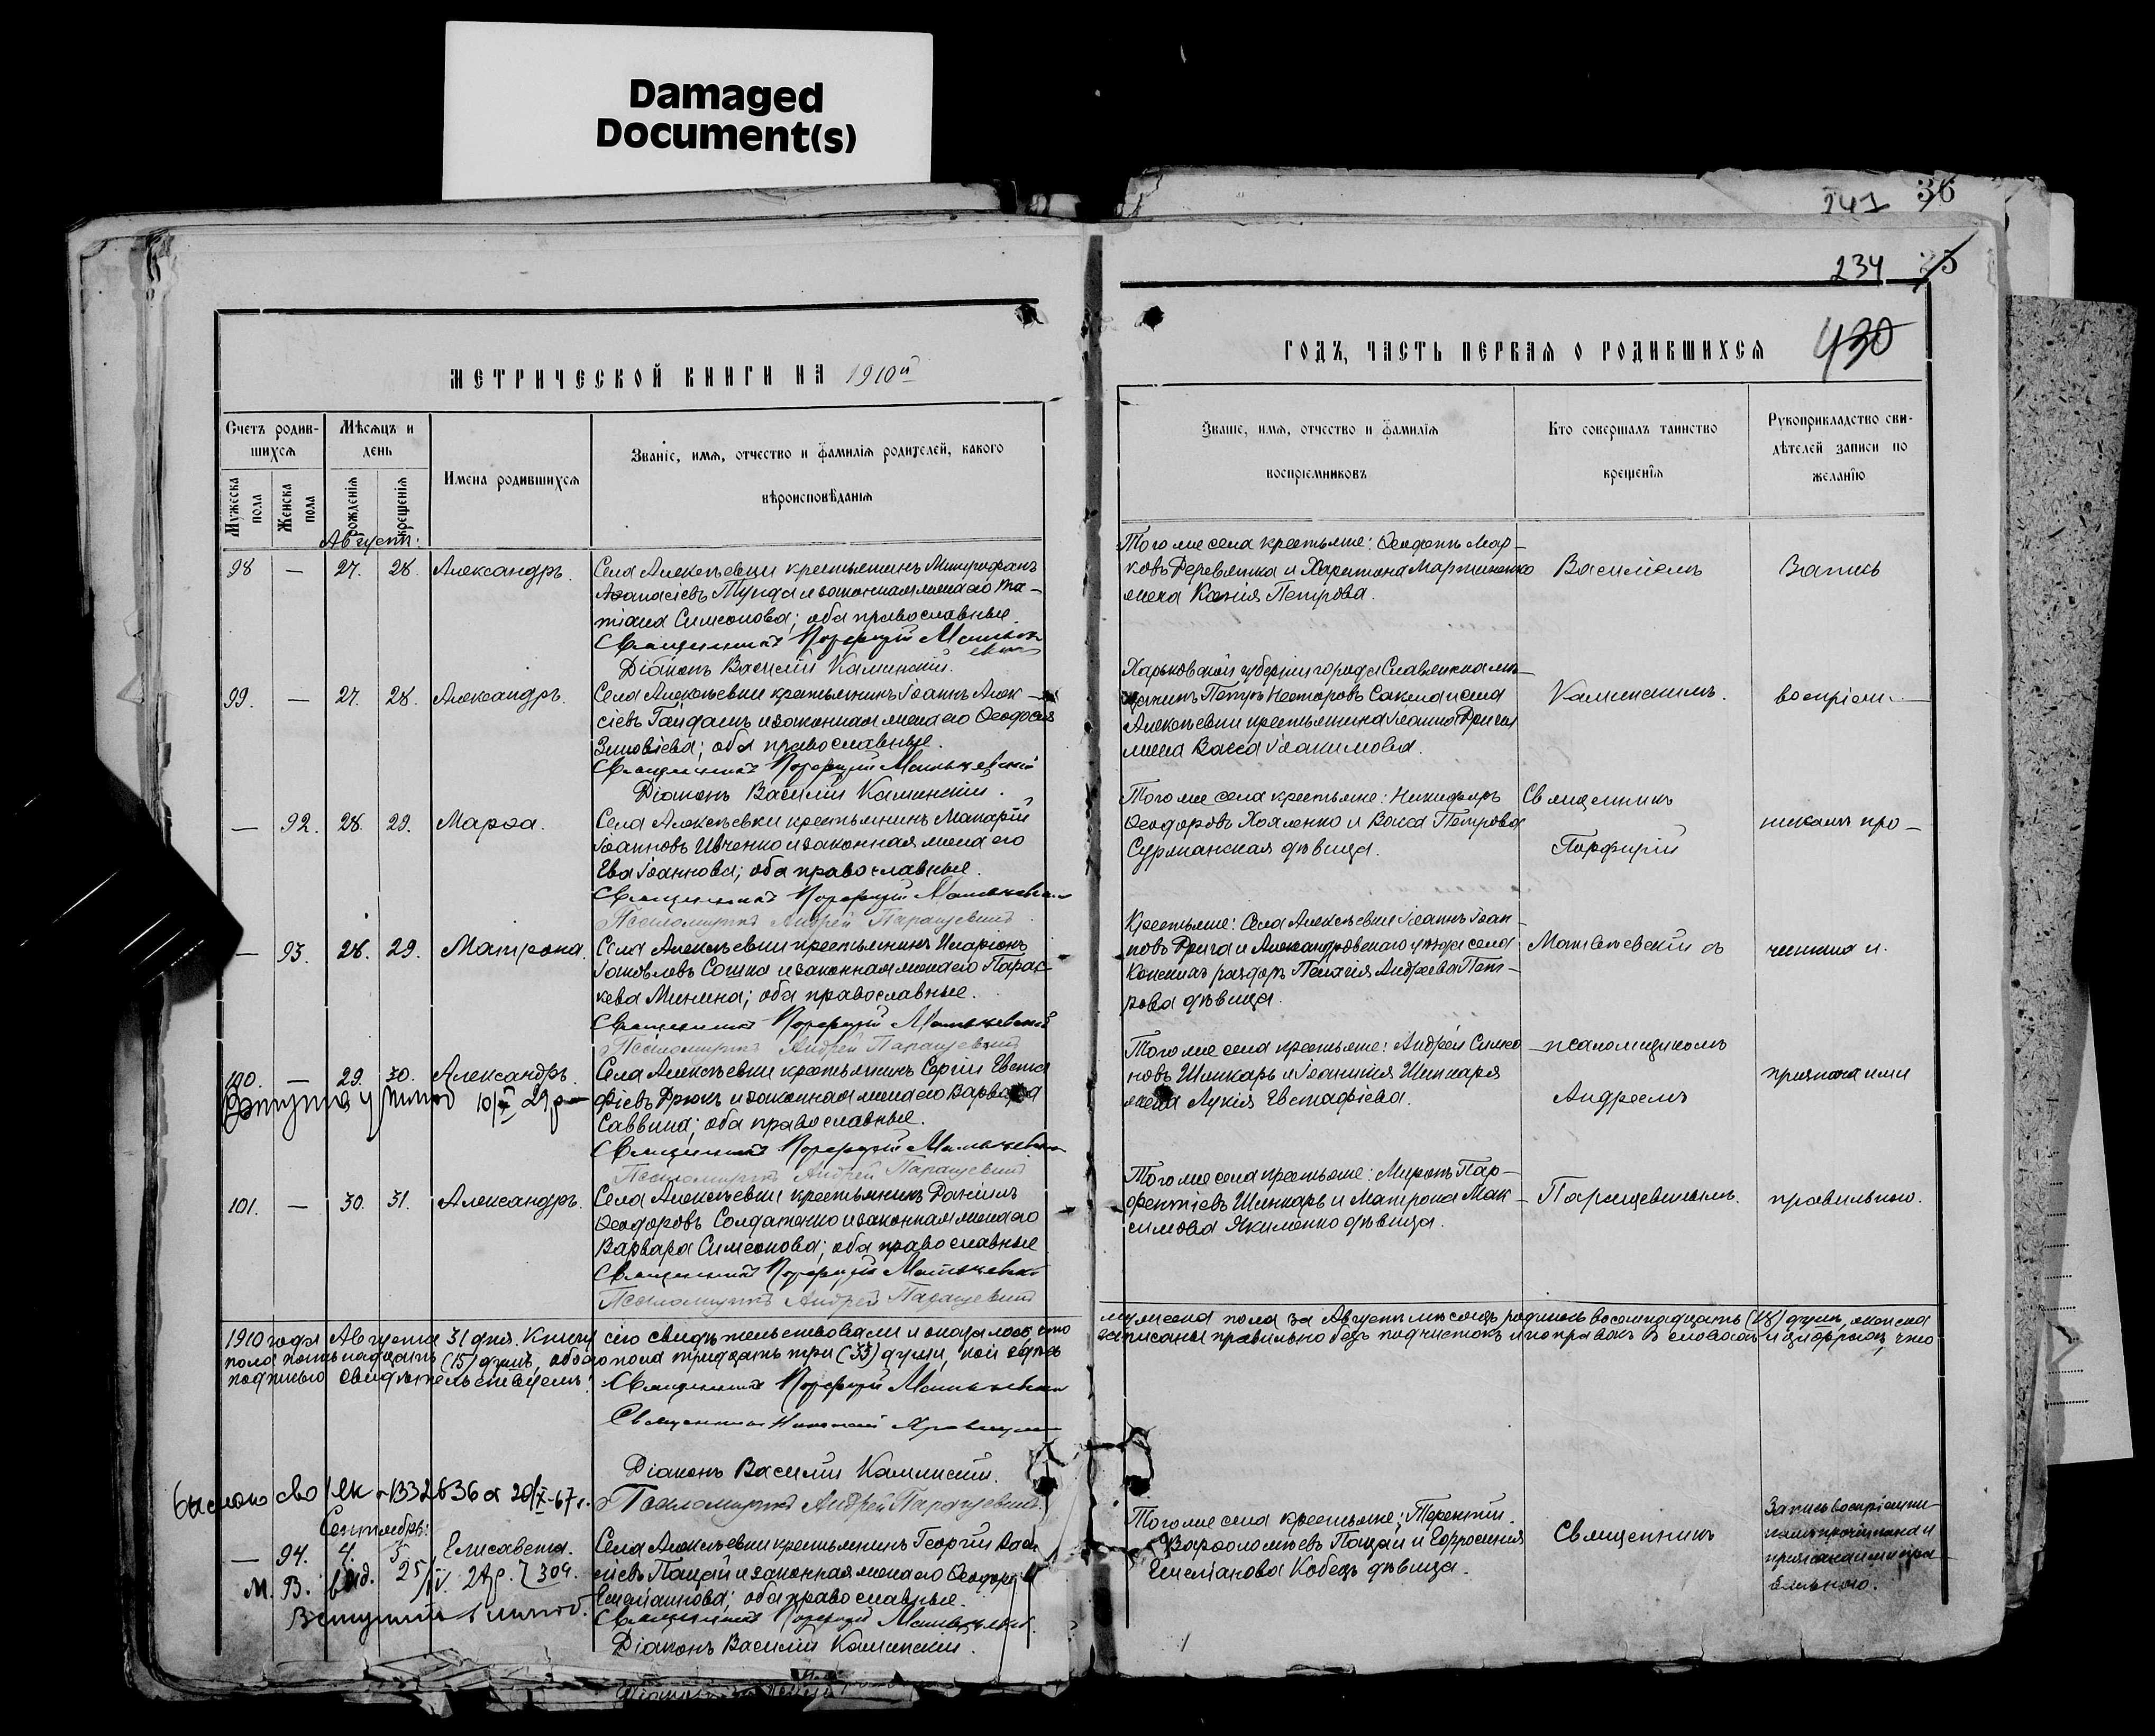 Damaged
Document(s)
241 36
234 25
430
МЕТРИЧЕСКОЙ КНИГИ НА 1910й
ГОДЪ, ЧАСТЬ ПЕРВАЯ О РОДИВШИХСЯ
Счетъ родив-
шихся
Мужеска
пола
Женска
пола
Мѣсяцъ и
день
рожденія
крещенія
Имена родившихся
Званіе, имя, отчество и фамилія родителей, какого
вѣроисповѣданія
Званіе, имя, отчество и фамилія
воспріемниковъ
Кто совершалъ таинство
крещенія
Рукоприкладство сви-
дѣтелей записи по
желанію
Августъ:
98 — 27. 28. Александръ.
Села Алексѣевки крестьянинъ Митрофанъ
Аѳанасіевъ Тунда и законная жена его Та-
тіана Симеонова; оба православные.
Священникъ Порфирій
Діаконъ Василій Каминскій.
Того же села крестьяне: Ѳеодотъ Мар-
ковъ Деревянка и Харитона Мартиненко
жена Ксенія Петрова.
Василіемъ
Запись
99. — 27. 28. Александръ.
Села Алексѣевки крестьянинъ Іоаннъ Алек-
сіевъ Гайдашъ и законная жена его Ѳеодосія
Зиновіева; оба православные.
Священникъ Порфирій Матвѣевскій
Діаконъ Василій Каминскій.
Харьковской губерніи города Славянска мѣ-
щанинъ Петръ Несторовъ Сакела и села
Алексѣевки крестьянина Іоанна Дрига
жена Васса Іоакимова.
Каминскимъ.
воспріем-
— 92. 28. 29. Марѳа.
Села Алексѣевки крестьянинъ Макарій
Іоанновъ Ивченко и законная жена его
Ева Іоаннова; оба православные.
Священникъ Порфирій Матвѣевскій
Псаломщикъ Андрей Паращевинъ.
Того же села крестьяне: Никифоръ
Ѳеодоровъ Хояленко и Васса Петрова
Сурманская дѣвица.
Священникъ
Порфирій
никамъ про-
— 93. 28. 29. Матрона.
Села Алексѣевки крестьянинъ Иларіонъ
Іаковлевъ Сошка и законная жена его Парас-
кева Минина; оба православные.
Священникъ Порфирій Матвѣевскій
Псаломщикъ Андрей Паращевинъ
Крестьяне: Села Алексѣевки Іоаннъ Іоан-
новъ Дрига и Александровскаго уѣзда села
Конскихъ раздоръ Пелагія Андреева Пет-
рова дѣвица.
Матвѣевскій съ
читана и
100. — 29. 30. Александръ.
10/X 29 р
Села Алексѣевки крестьянинъ Сергій Евста-
фіевъ Дрюкъ и законная жена его Варвара
Саввина; оба православные.
Священникъ Порфирій Матвѣевскій
Псаломщикъ Андрей Паращевинъ
Того же села крестьяне: Андрей Симео-
новъ Шинкарь и Іоанникія Шинкаря
жена Лукія Евстафіева.
псаломщикомъ
Андреемъ
признана ими
101. — 30. 31. Александръ.
Села Алексѣевки крестьянинъ Даніилъ
Ѳеодоровъ Солдатенко и законная жена его
Варвара Симеонова; оба православные
Священникъ Порфирій Матвѣевскій
Псаломщикъ Андрей Паращевинъ
Того же села крестьяне: Миронъ Пар-
фентіевъ Шинкарь и Матрона Мак-
симова Якименко дѣвица.
Паращевинымъ.
правильною.
1910 года Августа 31 дня. Книгу сію свидѣтельствовали и оказалось, что мужеска пола за Августъ мѣсяцъ родилось восемнадцать (18) душъ, женска
пола пятьнадцать (15) душъ, обоего пола тридцать три (33) души, кои здѣсь записаны правильно безъ подчистокъ и поправокъ въ словахъ и цифрахъ, что
подписью свидѣтельствуемъ:
Священникъ Порфирій Матвѣевскій
Священникъ Николай
Діаконъ Василій Каминскій.
Псаломщикъ Андрей Паращевинъ.
Сентябрь:
— 94. 4. 5. Елисавета.
М. В. выд. 25/IV. 24 р.
Села Алексѣевки крестьянинъ Георгій
Пащай и законная жена его Ѳеодора
Емеліанова; оба православные.
Священникъ Порфирій Матвѣевскій.
Діаконъ Василій Каминскій.
Того же села крестьяне: Терентій
Варѳоломѣевъ Пащай и Евфросинія
Емеліанова Кобецъ дѣвица.
Священникъ
Запись воспріемни-
камъ прочитана и
признана ими пра-
вильною.